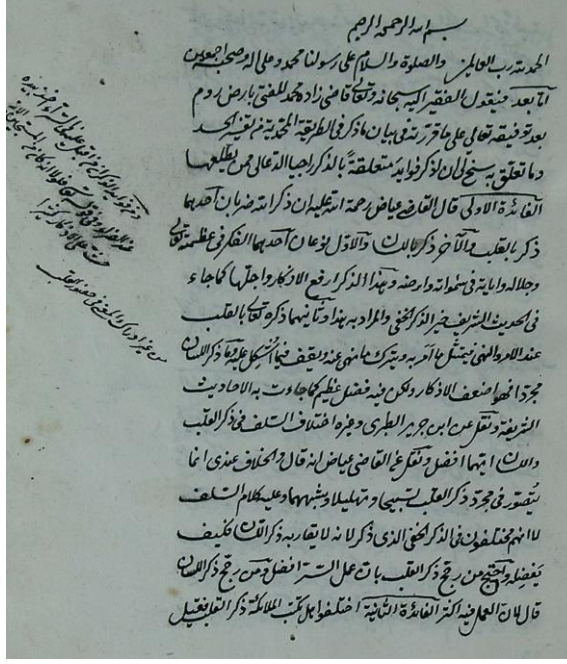 بسم الله الرحمن الرحيم
الحمد لله رب العالمين والصلوة والسلام على رسولنا محمد وعلى اله وصحبه اجمعين
اما بعد فيقول الفقير اليه سبحانه وتعالى قاضي زاده محمد المفتي بارض روم
بعد توفيقه تعالى على ما قررته في بيان ما ذكر في الطريقة المحمدية من تفسير الحمد
وما تعلق به سنح لي ان اذكر فوايد متعلقة بالذكر راجيا الدعا ممن يطلع بها
الفائدة الاولى قال القاضي عياض رحمة الله عليه ان ذكر الله ضربان احدهما
ذكر بالقلب والآخر ذكر باللسان والاول نوعان احدهما الفكر في عظمته تعالى
وجلاله واياته في سمواته وارضه وهذا الذكر ارفع الاذكار واجلها كما جاء
في الحديث الشريف خير الذكر الخفي والمراد به هذا وثانيهما ذكره تعالى بالقلب
عند الامر والنهي فيمتثل ما امر به ويترك ما نهى عنه ويقف فيما اشكل عليه واما ذكر اللسان
مجردا فهو اضعف الاذكار ولكن فيه فضل عظيم كما جاءت به الاحاديث
الشريفة ونقل عن ابن جرير الطبري وغيره اختلاف السلف في ذكر القلب
واللسان ايهما افضل ونقل عن القاضي عياض انه قال والخلاف عندي انما
يتصور في مجرد ذكر القلب تسبيحا وتهليلا وشبههما وعليه كلام السلف
لا انهم مختلفون في الذكر الخفي الذي ذكر لانه لا يقاربه ذكر اللسان فكيف
يفضله واحتج من رجح ذكر القلب بان عمل السر افضل ومن رجح ذكر اللسان
قال لان العمل فيه اكثر الفائدة الثانية اختلفوا هل يكتب الملائكة ذكر القلب فقيل
من غير ادراك المعنى في حضور القلب